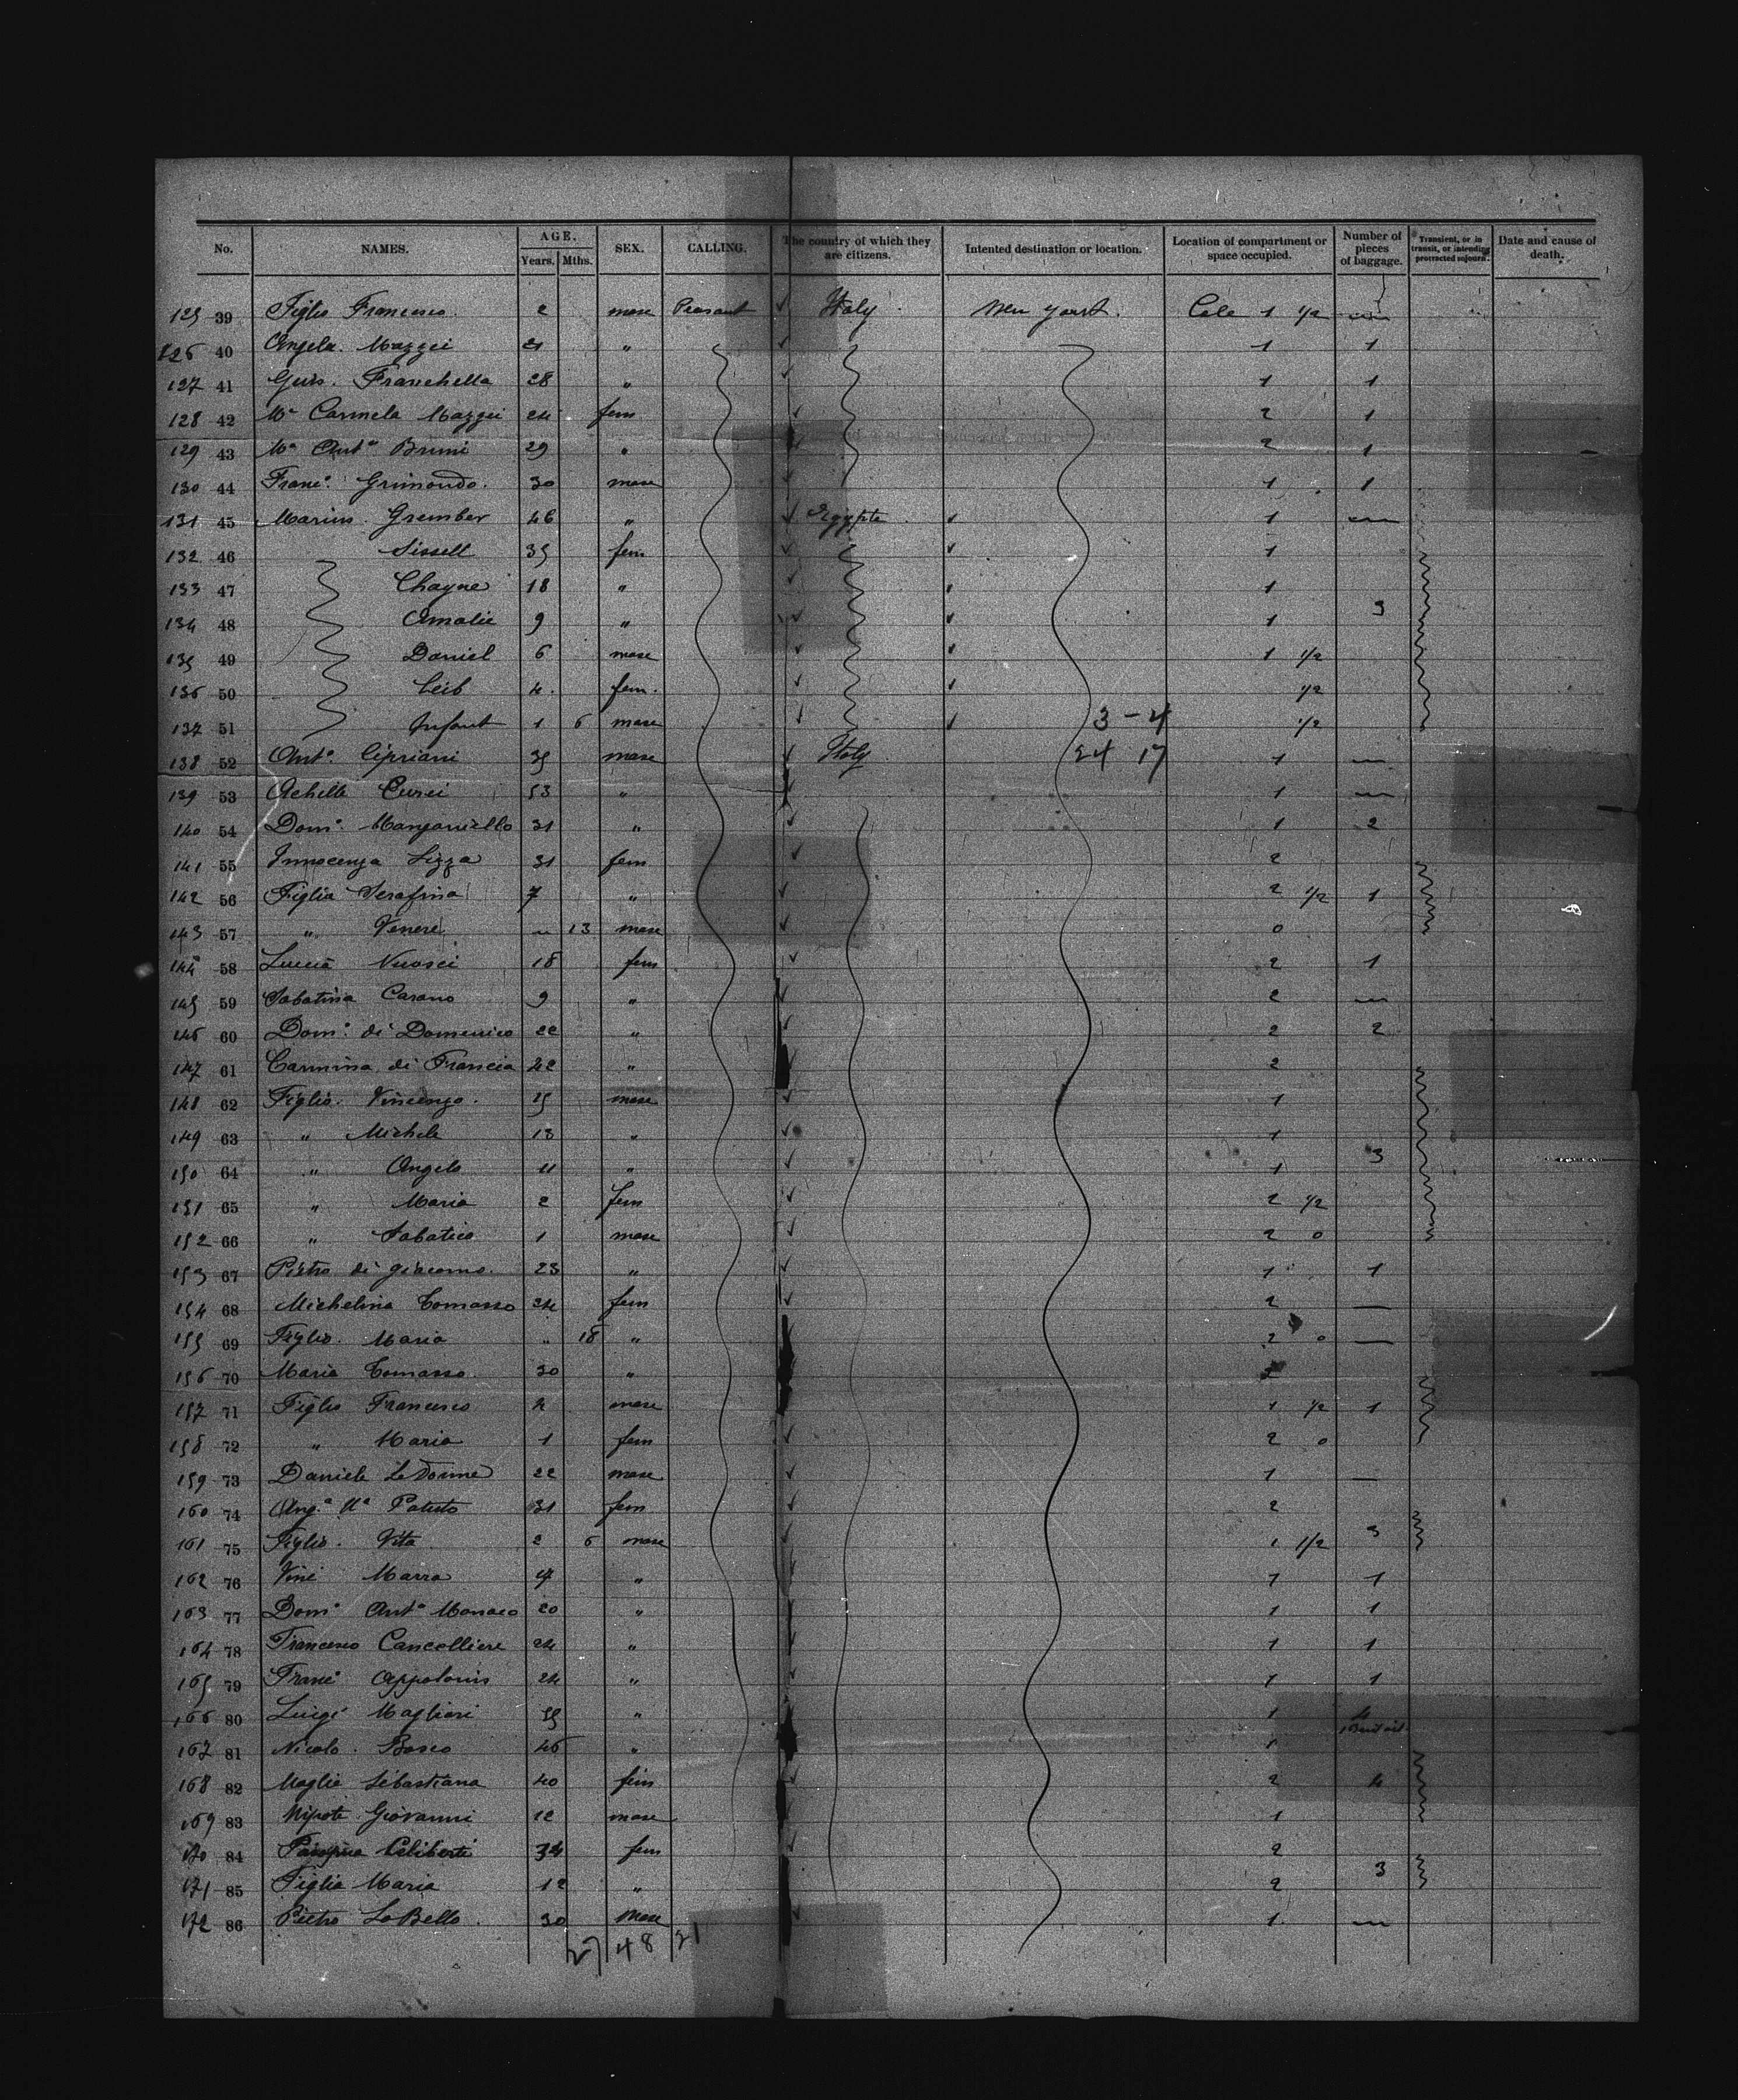 No. NAMES. AGE. Years. Mths. SEX. CALLING. The country of which they are citizens. Intented destination or location. Location of compartment or space occupied. Number of pieces of baggage. Transient, or in transit, or intending protracted sojourn. Date and cause of death.
125 39 Figlio Francesco 2 masc Peasant Italy New York. Cale 1 1/2
126 40 Angela Mazzei 21 " 1 1
127 41 Gius. Franchella 28 " 1 1
128 42 Ma Carmela Mazzei 24 fem 2 1
129 43 Ma Anta Bruni 29 " 2 1
130 44 Franc. Grimondo. 30 masc 1 1
131 45 Marius Grember 46 " Egypte 1
132 46 Sissell 35 fem 1
133 47 Chayne 18 " 1
134 48 Amalie 9 " 1 3
135 49 Daniel 6 masc 1 1/2
136 50 Leib 4 fem. 1/2
137 51 Infant 1 6 masc 3 - 4 1/2
138 52 Anto Cipriani 35 masc Italy 24 17 1
139 53 Achille Curci 53 " 1
140 54 Domo Manganiello 31 " 1 2
141 55 Innocenza Lizza 31 fem 2
142 56 Figlia Serafina 7 " 2 1/2 1
143 57 " Venere 13 masc 0
144 58 Luccia Nuosci 18 fem 2 1
145 59 Sabatina Carano 9 " 2
146 60 Doma di Domenico 22 " 2 2
147 61 Carmina di Francia 42 " 2
148 62 Figlio Vincenzo. 15 masc 1
149 63 " Michele 13 " 1
150 64 " Angelo 11 " 1 3
151 65 " Maria 2 fem 2 1/2
152 66 " Sabatico 1 masc 2 0
153 67 Pietro di Giacomo. 23 " 1 1
154 68 Michelina Tomasso 24 fem 2
155 69 Figlio Maria " 18 " 2 0
156 70 Maria Tomasso 30 "
157 71 Figlio Francesco 4 masc 1 1/2 1
158 72 " Maria 1 fem 2 0
159 73 Daniele Le Donne 22 masc 1
160 74 Anga Ma Patuto 31 fem 2
161 75 Figlio. Vita 2 6 masc 1 1/2 3
162 76 Vinc Marra " 1 1
163 77 Domo Anto Monaco 20 " 1 1
164 78 Francesco Cancelliere 24 " 1 1
165 79 Franc Appolonis 24 " 1 1
166 80 Luigi Magliari 55 " 1 4
167 81 Nicolo. Bosco 46 " 1
168 82 Moglie Sebastiana 40 fem 2 4
169 83 Nipote Giovanni 12 masc 1
170 84 Celiberti 34 fem 2
171 85 Figlia Maria 12 " 2 3
172 86 Pietro LoBello 30 masc 1
27 48 21